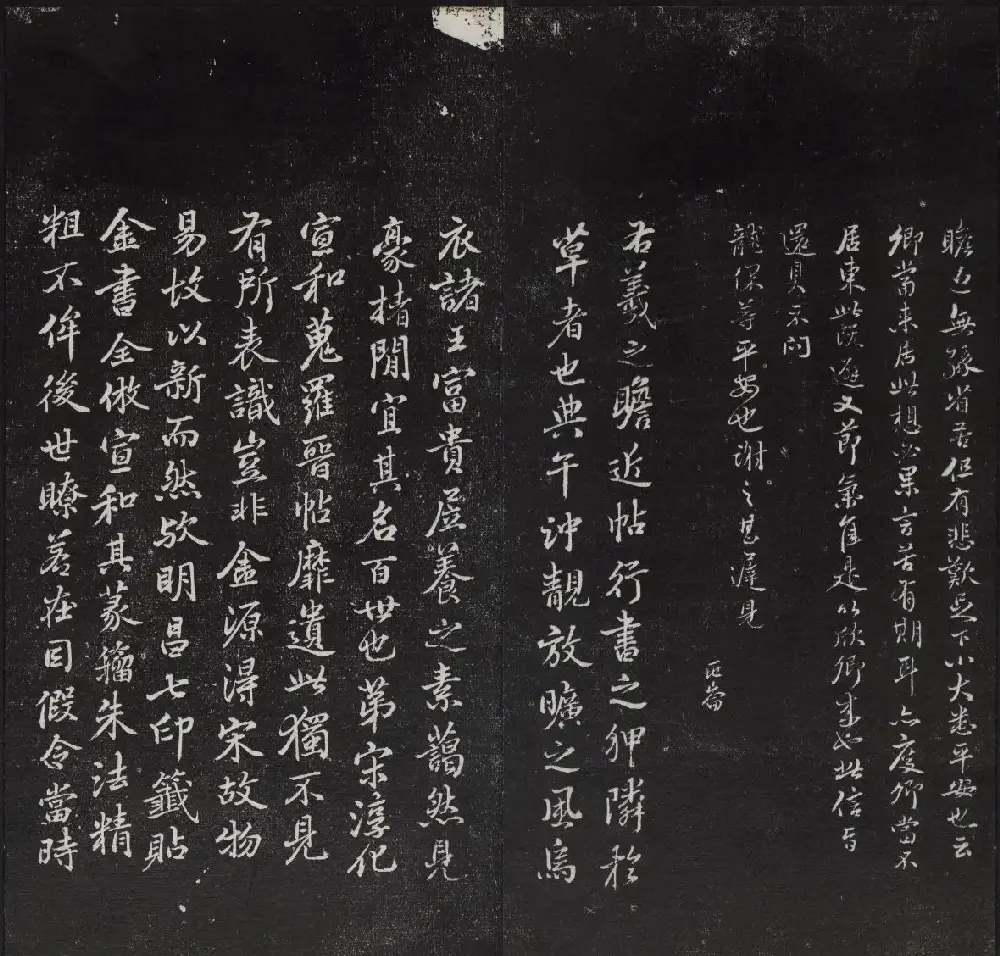 瞻近無緣省苦但有悲歎足下小大悉平安也云
卿當來居此想必果言苦有期耳亦度卿當不
居東此既避又節氣佳是以欣卿來也此信旨
還具示問
龍保等平安也謝之甚遲見
右羲之瞻近帖行書之狎隣於
草者也典午沖靚放曠之風烏
衣諸王富貴居養之素藹然見
豪楮閒宜其名百世也第宋淳化
宣和蒐羅晉帖靡遺此獨不見
有所表識豈非金源得宋故物
易故以新而然歟明昌七印籤貼
金書全倣宣和其篆籀朱法精
粗不侔後世瞭若在目假令當時